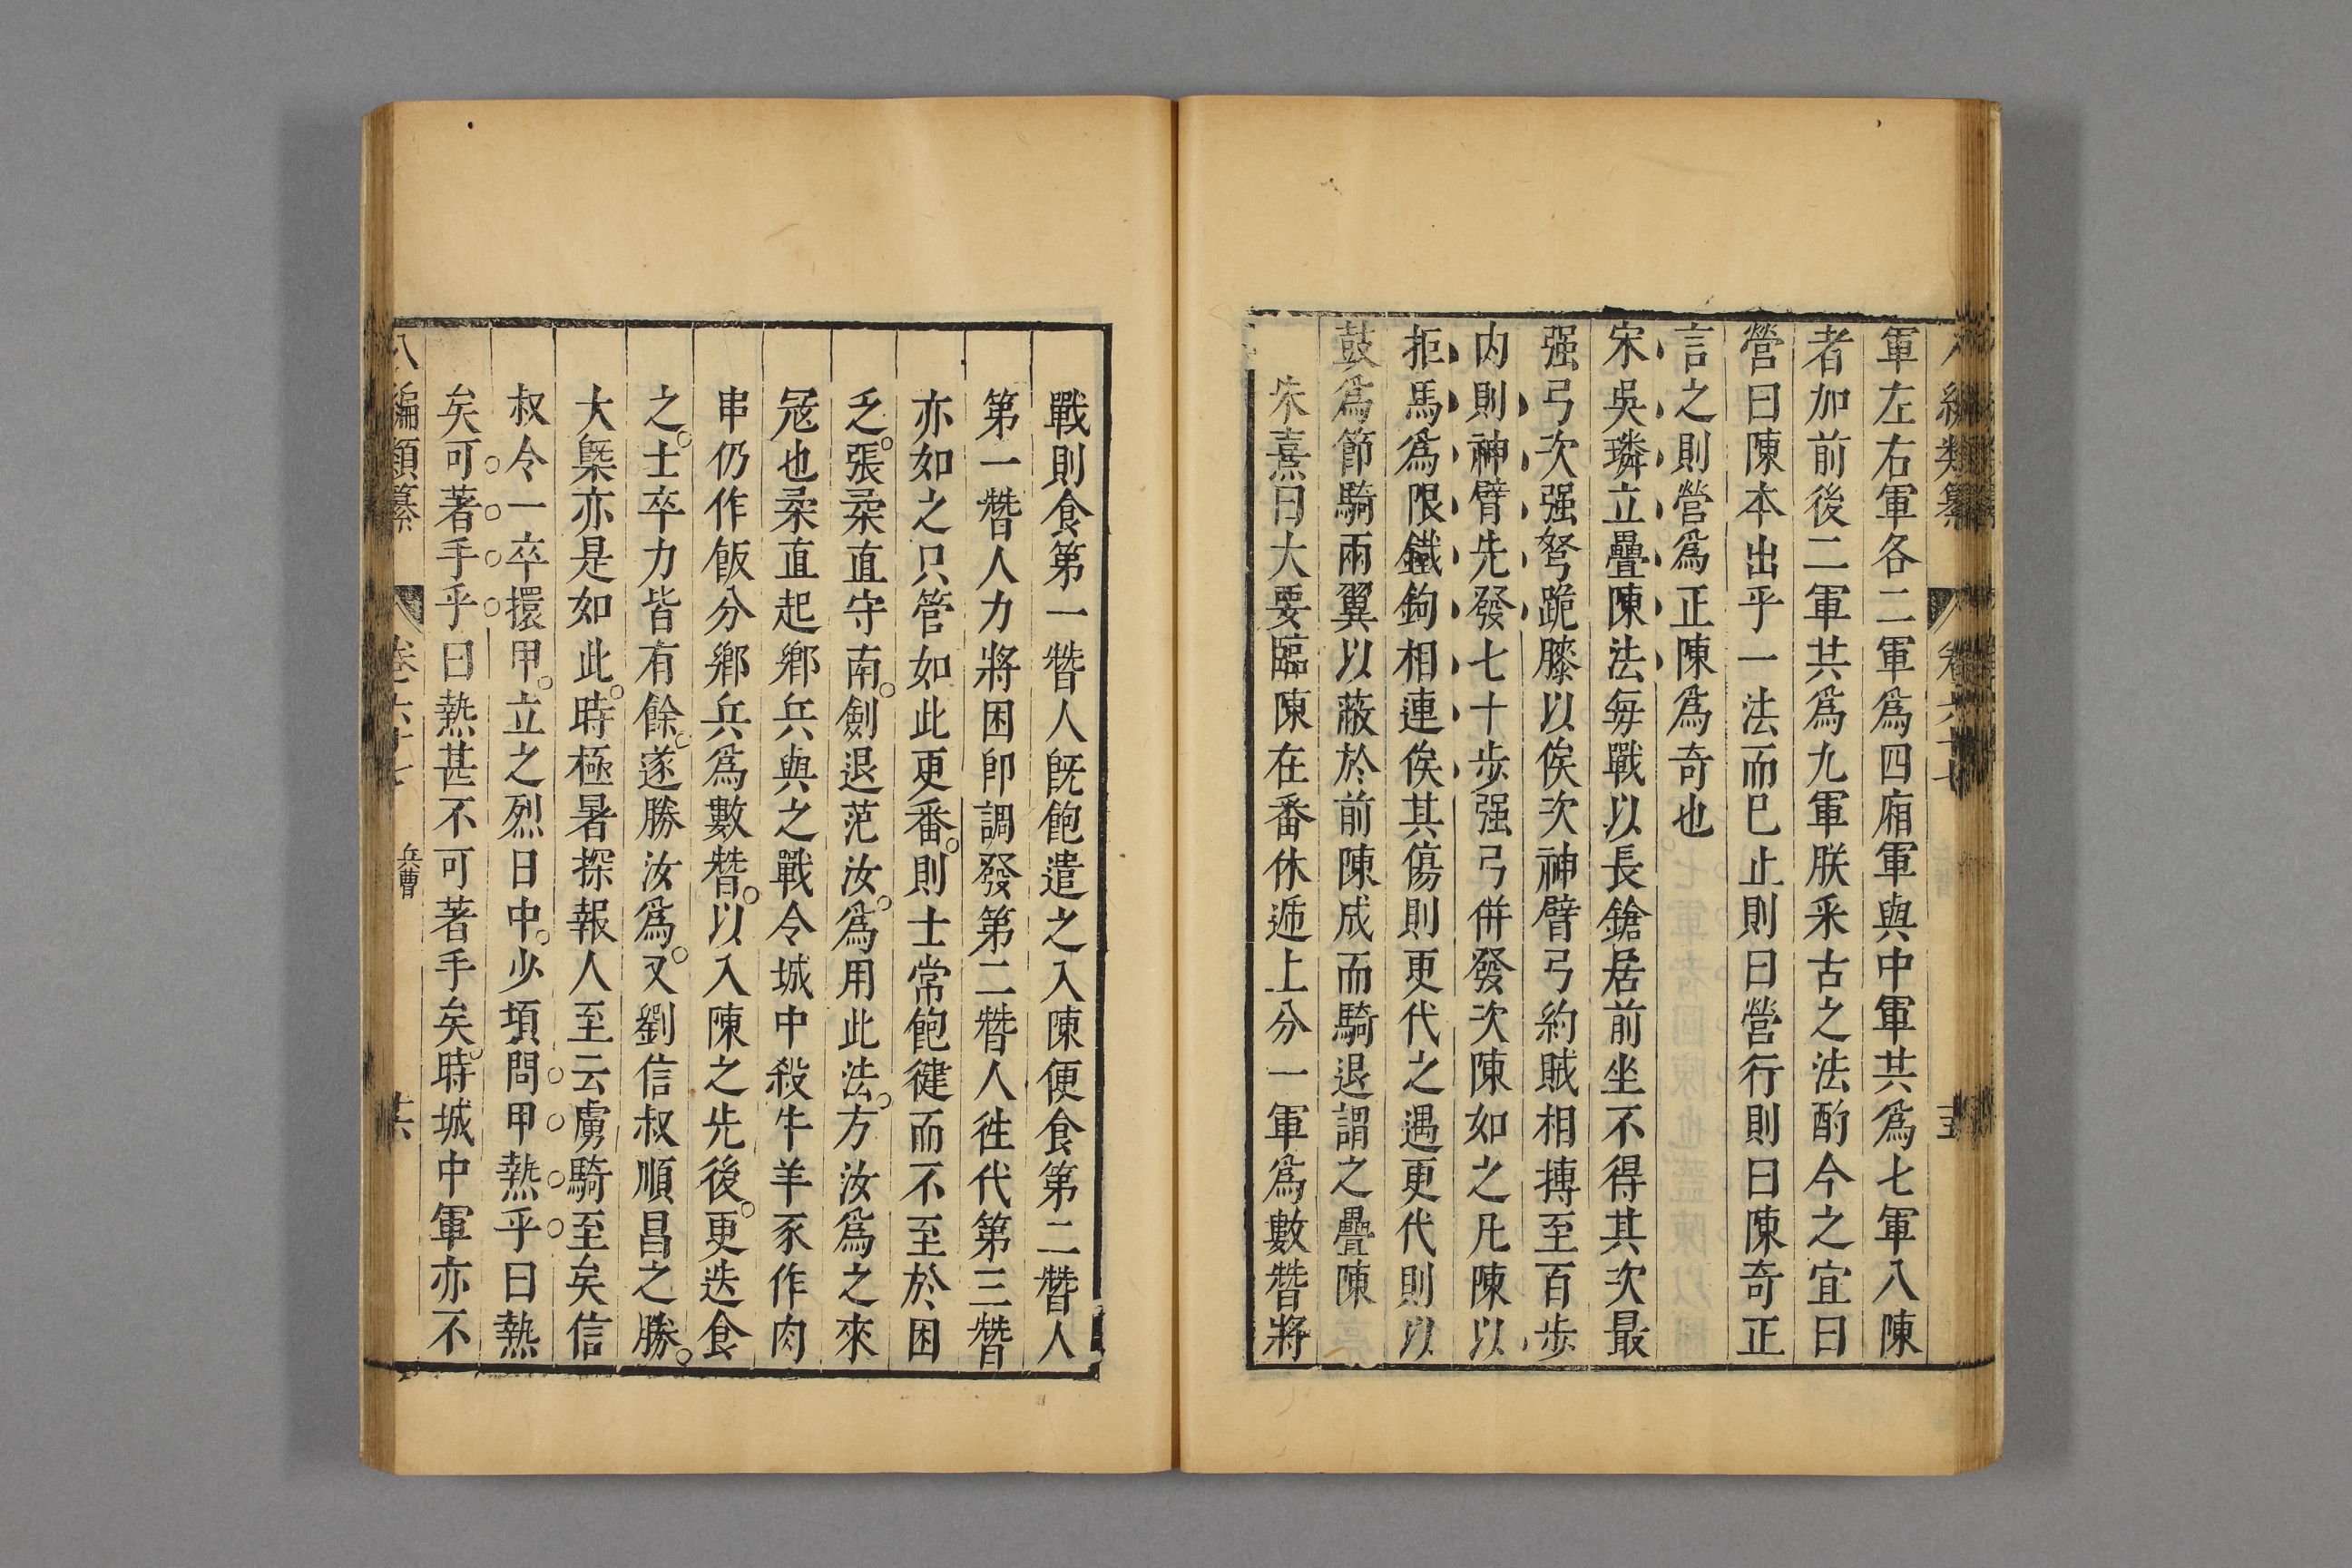 八編類纂 卷六十七 十五
軍左右軍各二軍爲四廂軍與中軍共爲七軍入陳
者加前後二軍共爲九軍朕采古之法酌今之宜曰
營曰陳本出乎一法而已止則曰營行則曰陳奇正
言之則營爲正陳爲奇也
宋吳璘立疊陳法每戰以長鎗居前坐不得其次最
强弓次强弩跪膝以俟次神臂弓約賊相搏至百步
内則神臂先發七十步强弓併發次陳如之凡陳以
拒馬爲限鐵鉤相連俟其傷則更代之遇更代則以
鼓爲節騎兩翼以蔽於前陳成而騎退謂之疊陳
朱熹曰大要臨陳在番休遞上分一軍爲數替將
戰則食第一替人旣飽遣之入陳便食第二替人
第一替人力將困卽調發第二替人徃代第三替
亦如之只管如此更番則士常飽健而不至於困
乏張柔直守南劍退范汝爲用此法方汝爲之來
冦也柔直起鄉兵與之戰令城中殺牛羊豕作肉
串仍作飯分鄉兵爲數替以入陳之先後更迭食
之士卒力皆有餘遂勝汝爲又劉信叔順昌之勝
大槩亦是如此時極暑探報人至云虜騎至矣信
叔令一卒擐甲立之烈日中少頃問甲熱乎曰熱
矣可著手乎曰熱甚不可著手矣時城中軍亦不
八編類纂 卷六十七 兵曹 十六